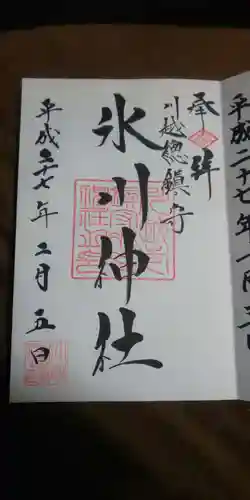 奉拝
川越総鎮守
氷川神社
平成二十七年二月五日
平成二十七年